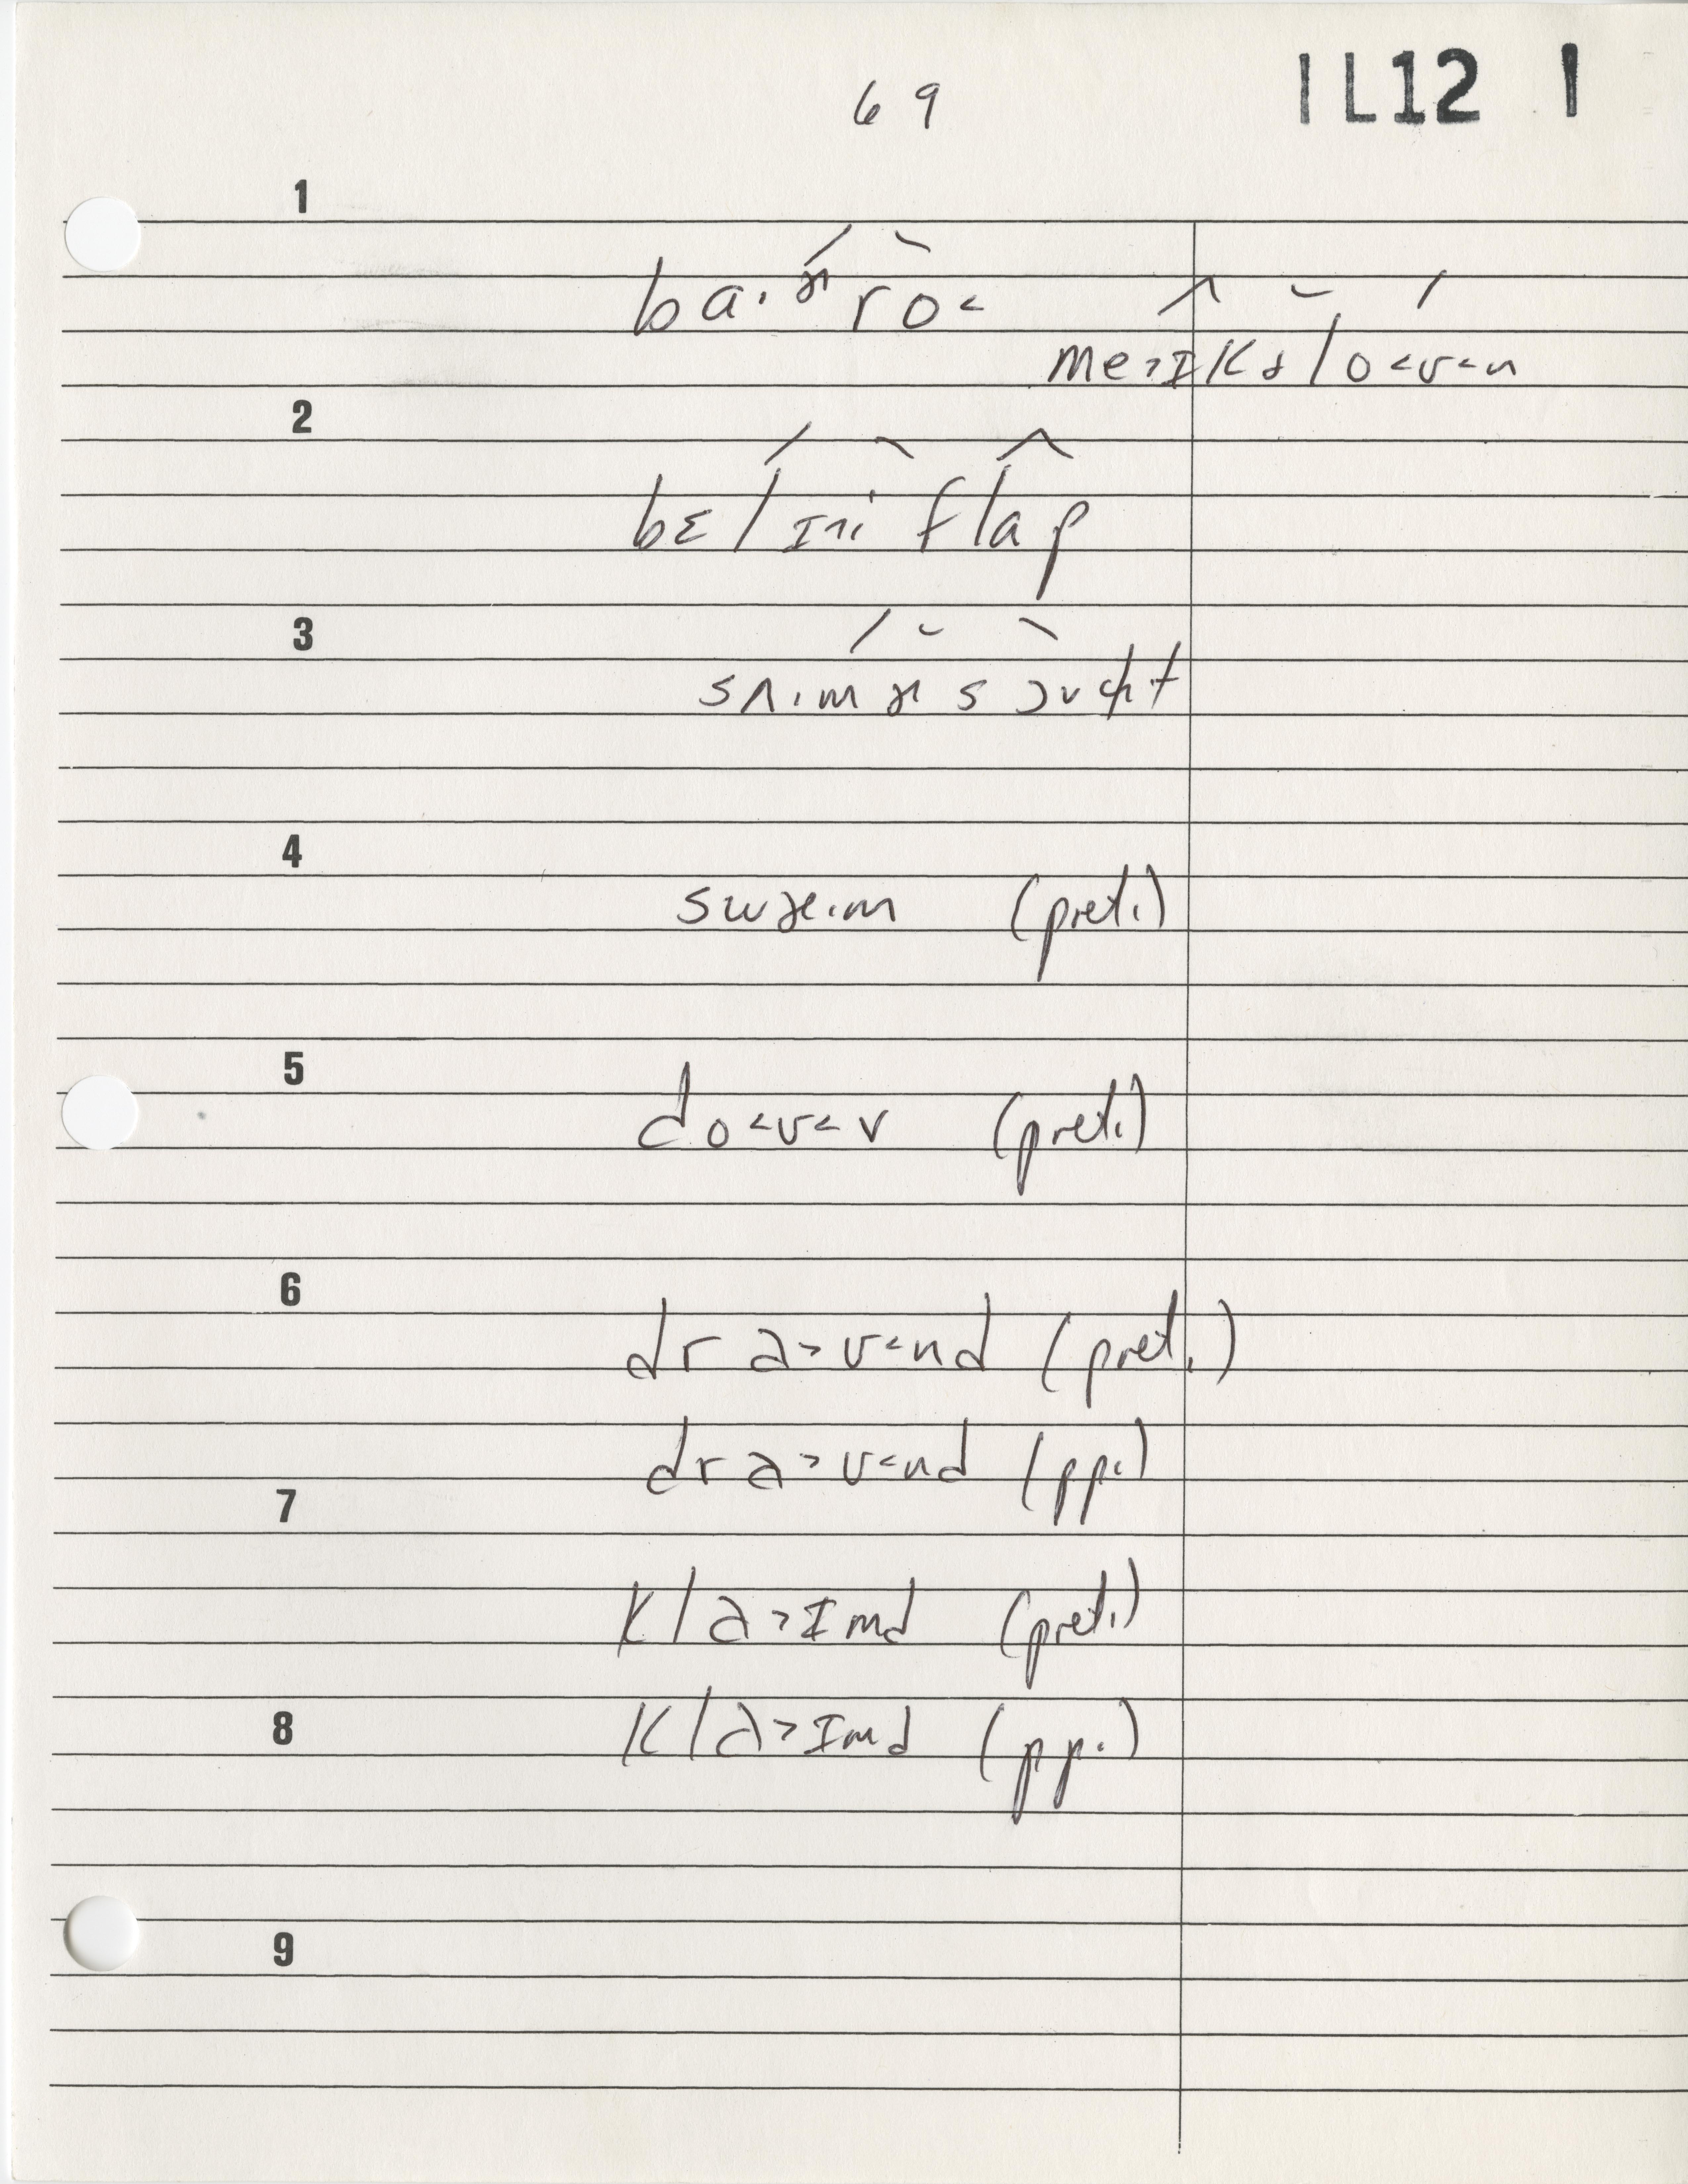 69
IL12 I
1
ba·ᵊʳro<
me>ɪkəlo<ʊ<n
2
bɛlɪni flap
3
sʌ·mɚsɔʊɫt
4
swæ·m (pret.)
5
do<ʊ<v (pret.)
6
dra>ʊ<nd (pret.)
dra>ʊ<nd (pp.)
7
kla>ɪmd (pret.)
8
kla>ɪmd (pp.)
9